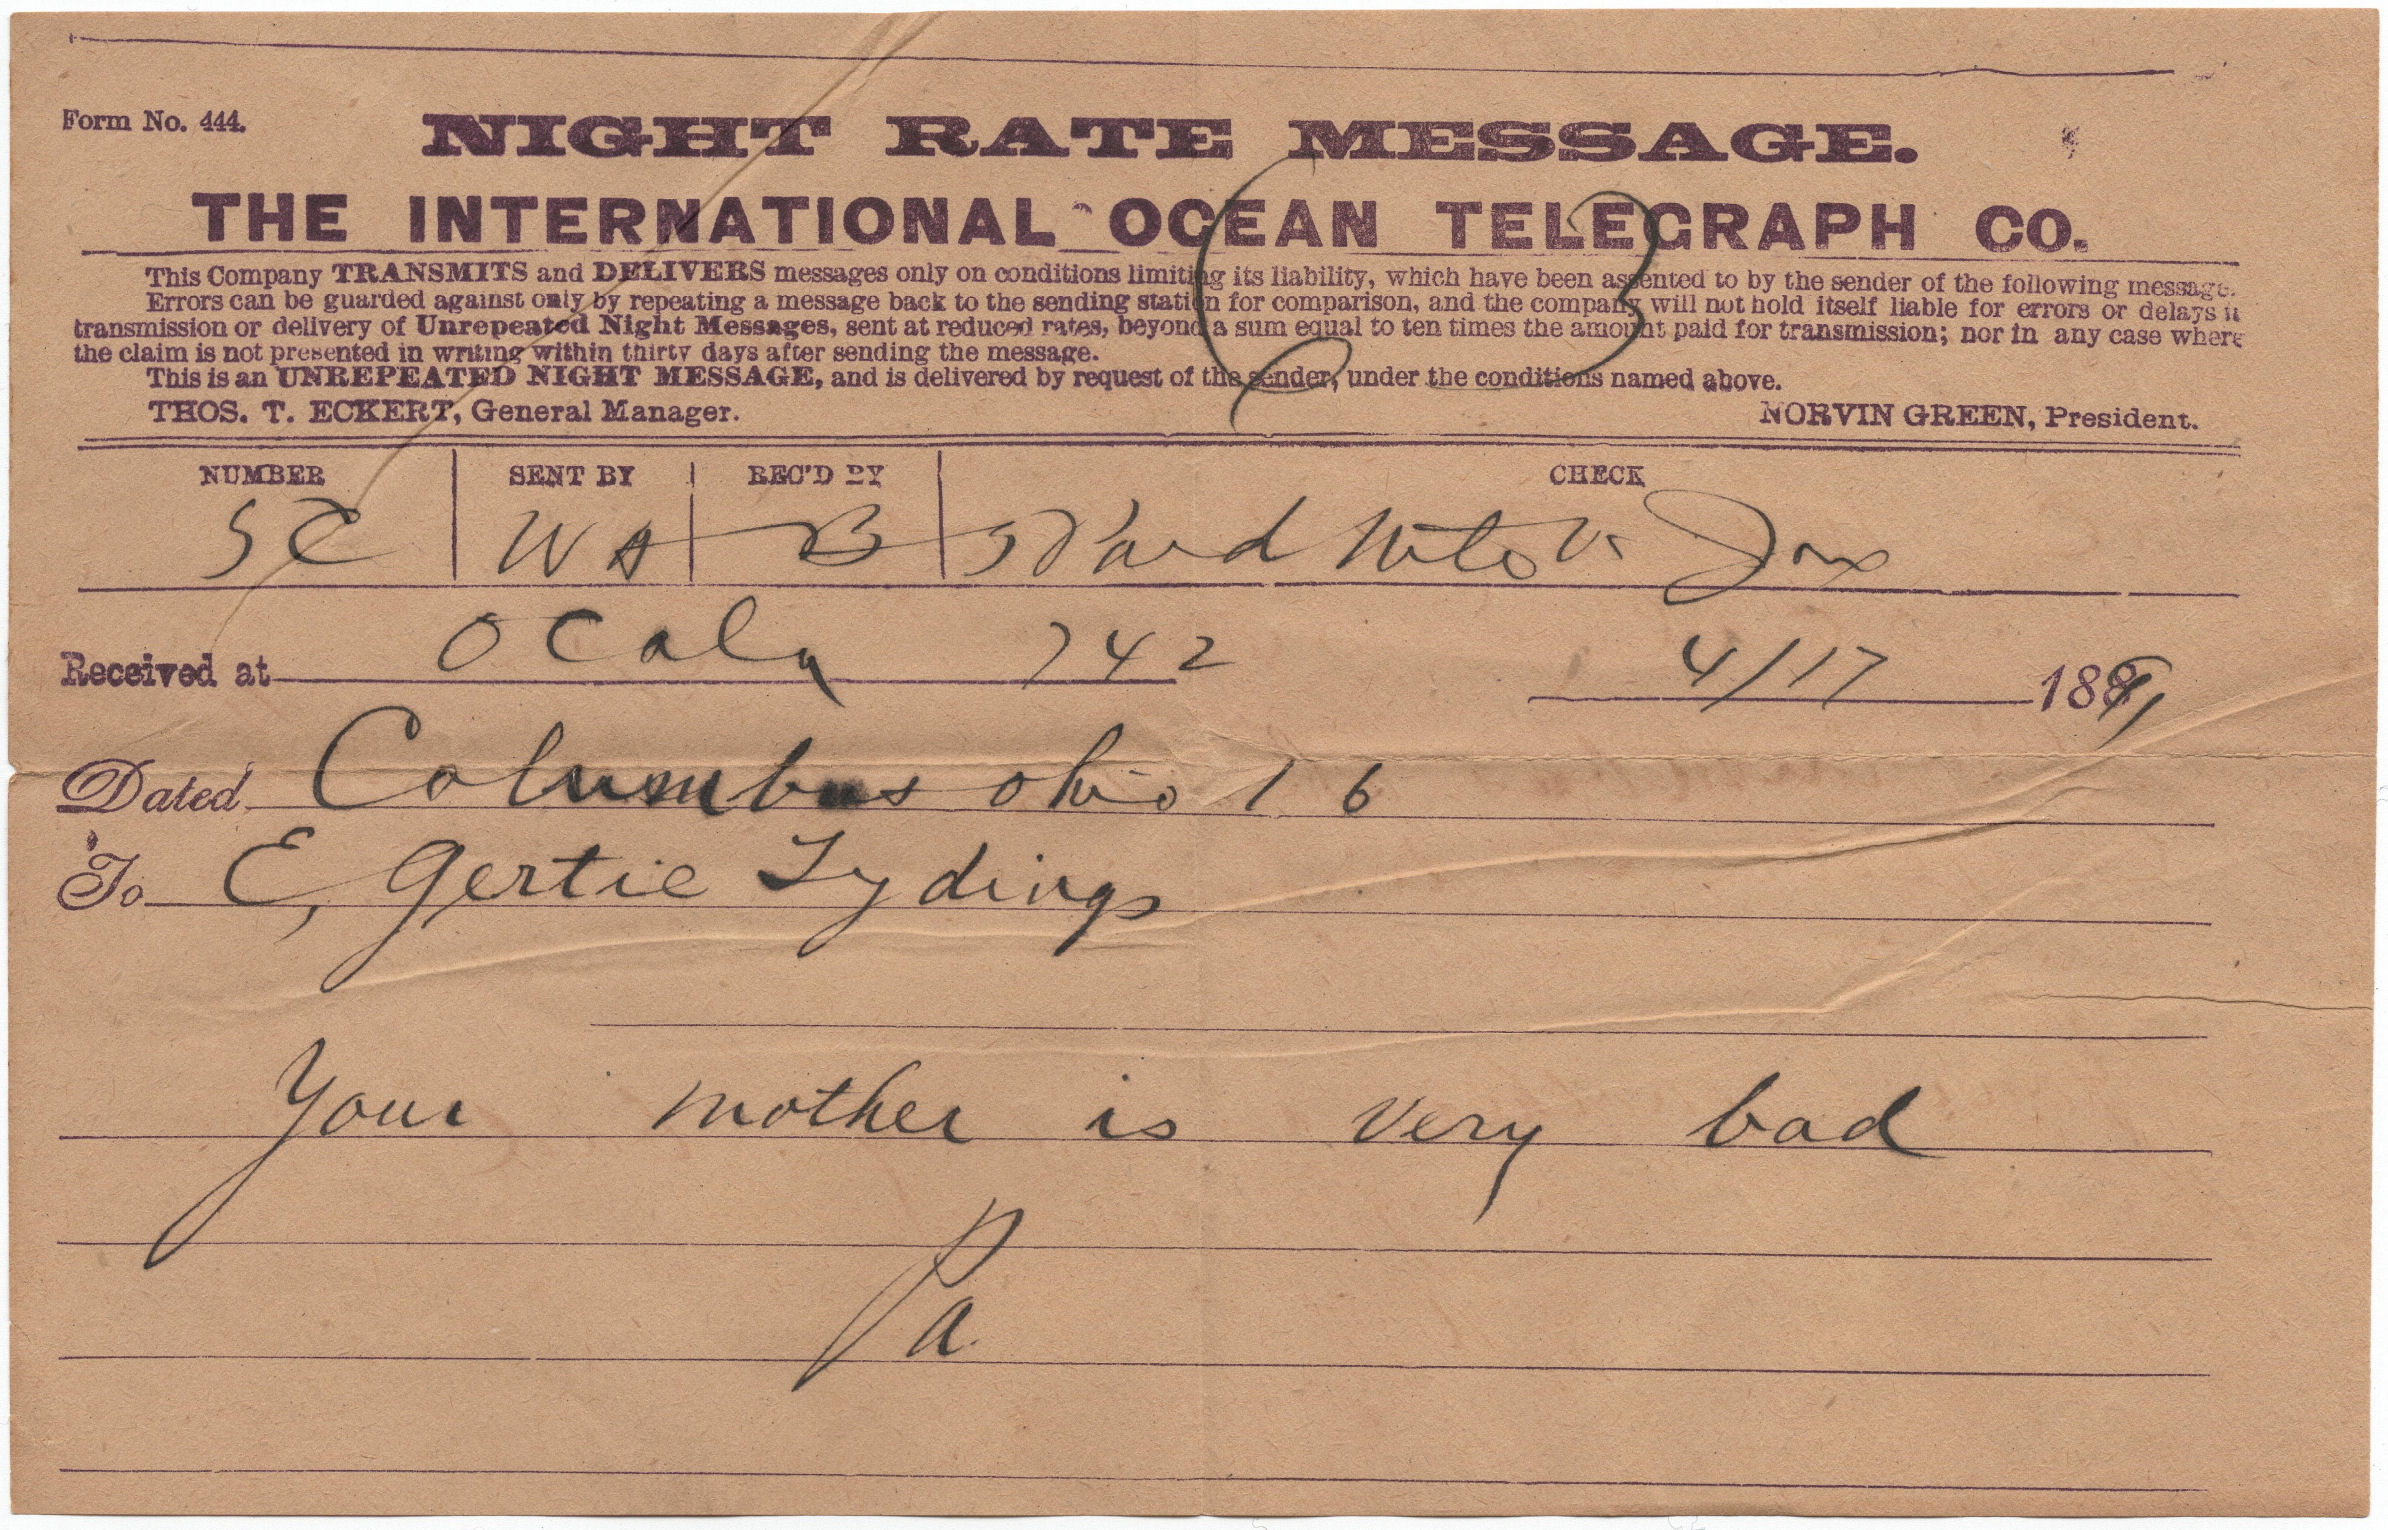 Form No. 444.
NIGHT RATE MESSAGE.
THE INTERNATIONAL OCEAN TELEGRAPH CO.
This Company TRANSMITS and DELIVERS messages only on conditions limiting its liability, which have been assented to by the sender of the following message.
Errors can be guarded against only by repeating a message back to the sending station for comparison, and the company will not hold itself liable for errors or delays in
transmission or delivery of Unrepeated Night Messages, sent at reduced rates, beyond a sum equal to ten times the amount paid for transmission; nor in any case where
the claim is not presented in writing within thirty days after sending the message.
This is an UNREPEATED NIGHT MESSAGE, and is delivered by request of the sender, under the conditions named above.
THOS. T. ECKERT, General Manager. NORVIN GREEN, President.
NUMBER SENT BY REC'D BY CHECK
WA B Paid Jax
Received at Ocala 742 4/17 188
Dated Columbus Ohio 16
To E, Gertie Tydings
Your mother is very bad
Pa